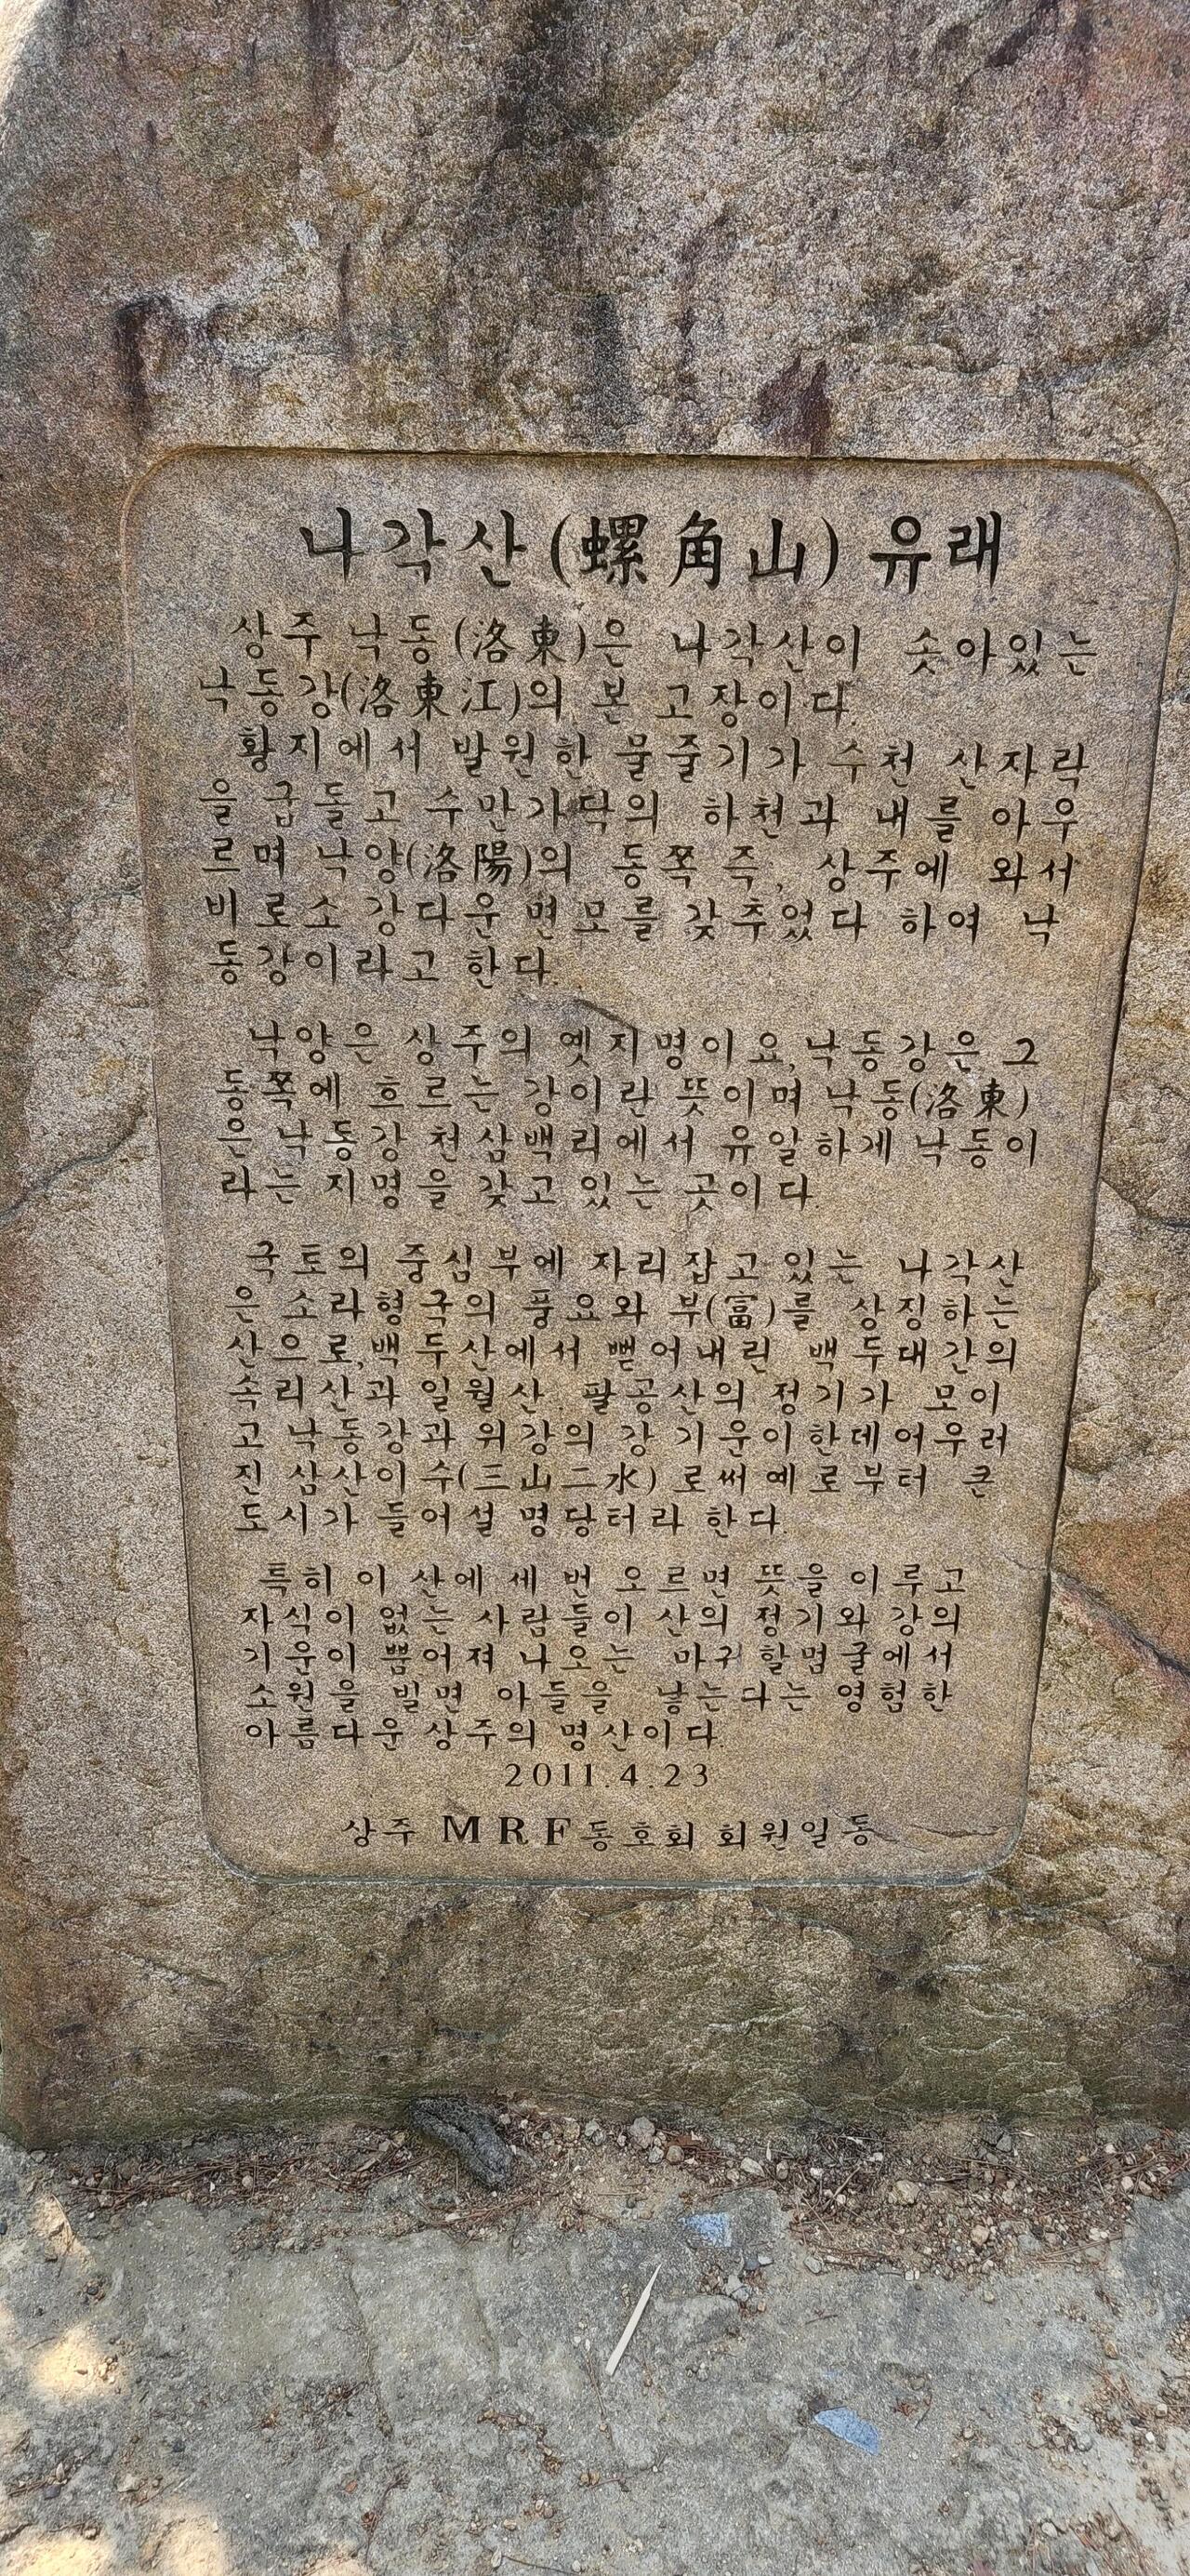 나각산(螺角山) 유래
상주 낙동(洛東)은 나각산이 솟아있는
낙동강(洛東江)의 본 고장이다.
황지에서 발원한 물줄기가 수천 산자락
을 굽돌고 수만가닥의 하천과 내를 아우
르며 낙양(洛陽)의 동쪽 즉, 상주에 와서
비로소 강다운 면모를 갖추었다 하여 낙
동강이라고 한다.
낙양은 상주의 옛지명이요,낙동강은 그
동쪽에 흐르는 강이란 뜻이며 낙동(洛東)
은 낙동강 천삼백리에서 유일하게 낙동이
라는 지명을 갖고 있는 곳이다.
국토의 중심부에 자리잡고 있는 나각산
은 소라형국의 풍요와 부(富)를 상징하는
산으로,백두산에서 뻗어내린 백두대간의
속리산과 일월산. 팔공산의 정기가 모이
고 낙동강과 위강의 강 기운이한데어우러
진 삼산이수(三山二水)로써예로부터 큰
도시가 들어설 명당터라 한다.
특히 이 산에 세 번 오르면 뜻을 이루고
자식이 없는 사람들이 산의 정기와 강의
기운이 뿜어져 나오는 마귀할멈굴에서
소원을 빌면 아들을 낳는다는 영험한
아름다운 상주의 명산이다.
2011.4.23
상주 MRF동호회 회원일동